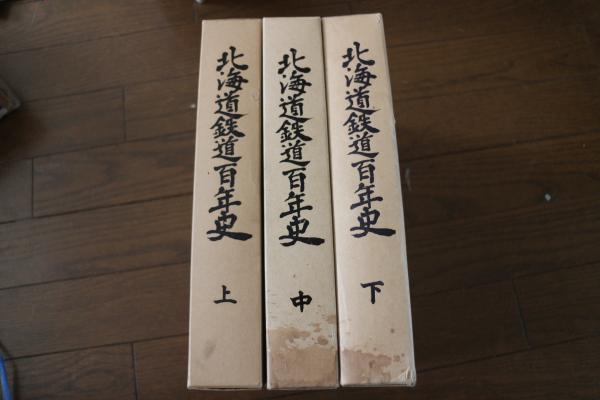 北海道鉄道百年史 上
北海道鉄道百年史 中
北海道鉄道百年史 下